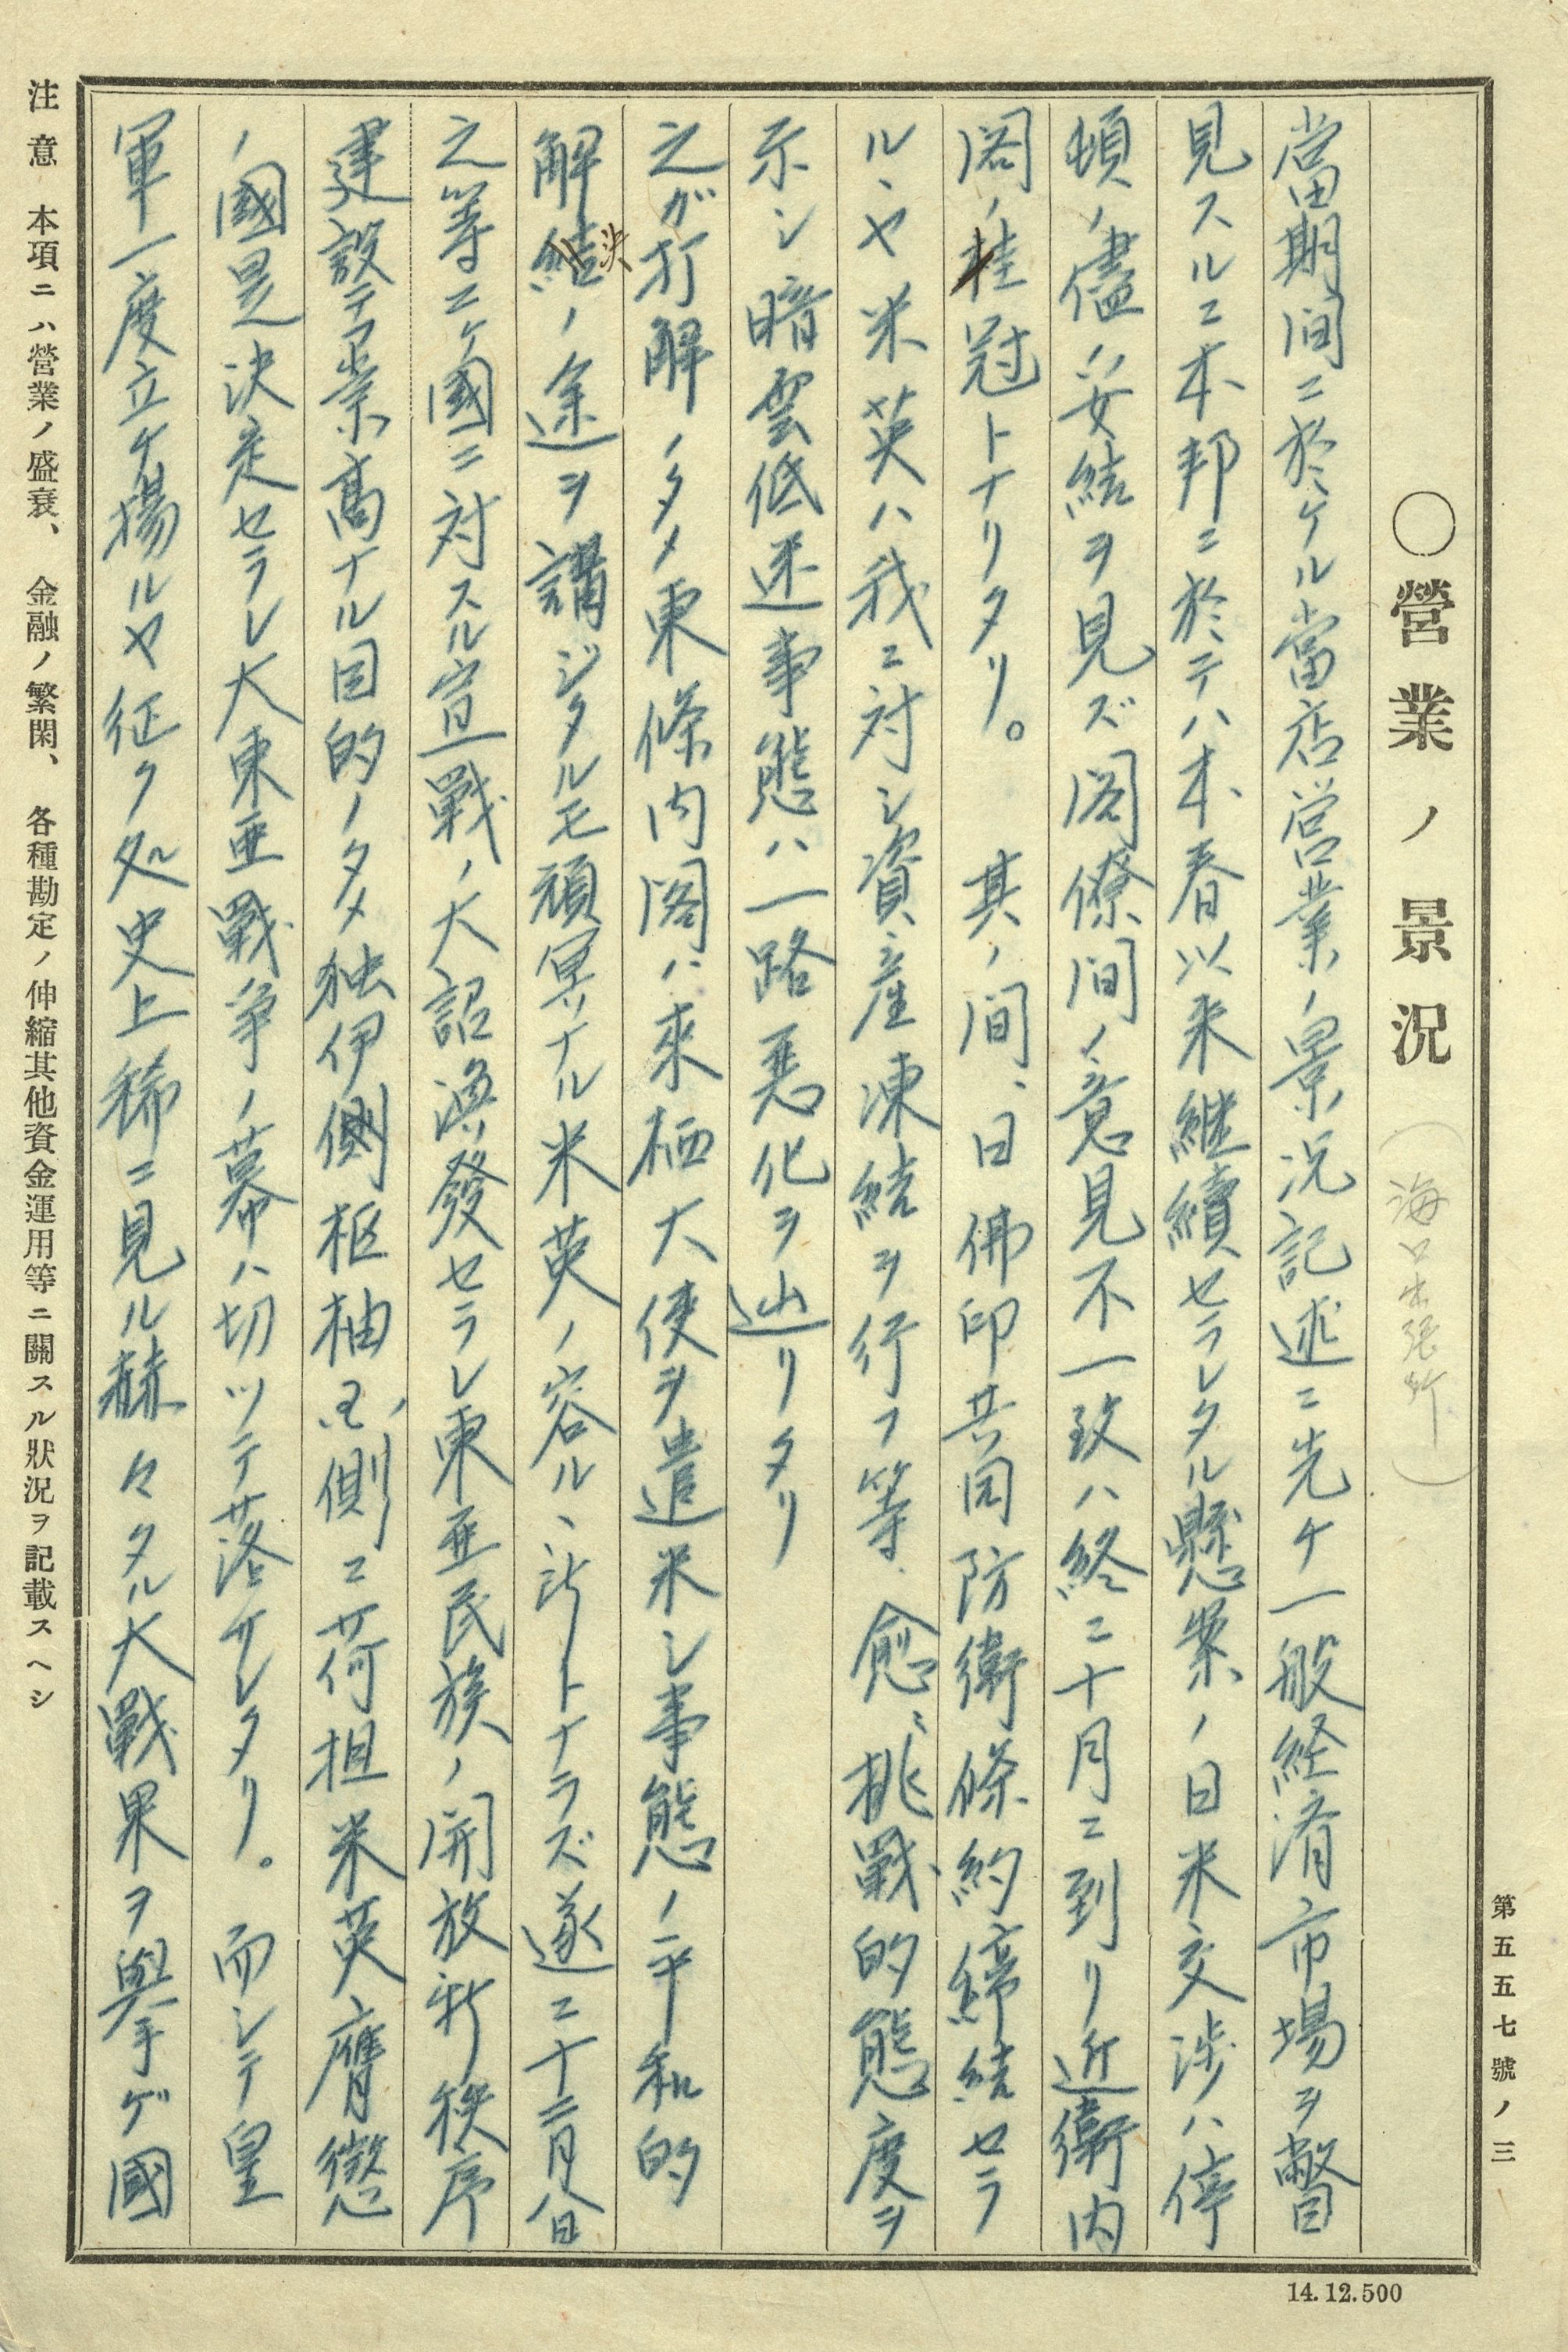 第五五七號ノ三
○營業ノ景況 (海口出張所)
當期間ニ於ケル當店営業ノ景况記述ニ先ケ一般経済市場ヲ瞥
見スルニ本邦ニ於テハ本春以来継續セラレタル懸案ノ日米交渉ハ停
頓ノ儘妥結ヲ見ズ閣僚間ノ意見不一致ハ終ニ十月ニ到リ近衛内
閣ノ桂冠トナリタリ。 其ノ間、日佛印共同防衛條約締結セラ
ルヽヤ米英ハ我ニ対シ資産凍結ヲ行フ等、愈〻挑戰的態度ヲ
示シ暗雲低迷事態ハ一路悪化ヲ辿リタリ
之ガ打解ノタメ東條内閣ハ來栖大使ヲ遣米シ事態ノ平和的
解決ノ途ヲ講ジタルモ頑冥ナル米英ノ容ルヽ所トナラズ遂ニ十二月八日
之等二ケ國ニ対スル宣戰ノ大詔渙發セラレ東亜民族ノ開放新秩序
建設テフ崇高ナル目的ノタメ独伊側枢柚国側ニ荷担米英膺懲
ノ國是決定セラレ大東亜戰争ノ幕ハ切ツテ落サレタリ。 而シテ皇
軍一度立ケ揚ルヤ征ク処史上稀ニ見ル赫々タル大戰果ヲ擧ゲ國
注意 本項ニハ營業ノ盛衰、金融ノ繁閑、各種勘定ノ伸縮其他資金運用等ニ關スル狀況ヲ記載スヘシ
14.12.500